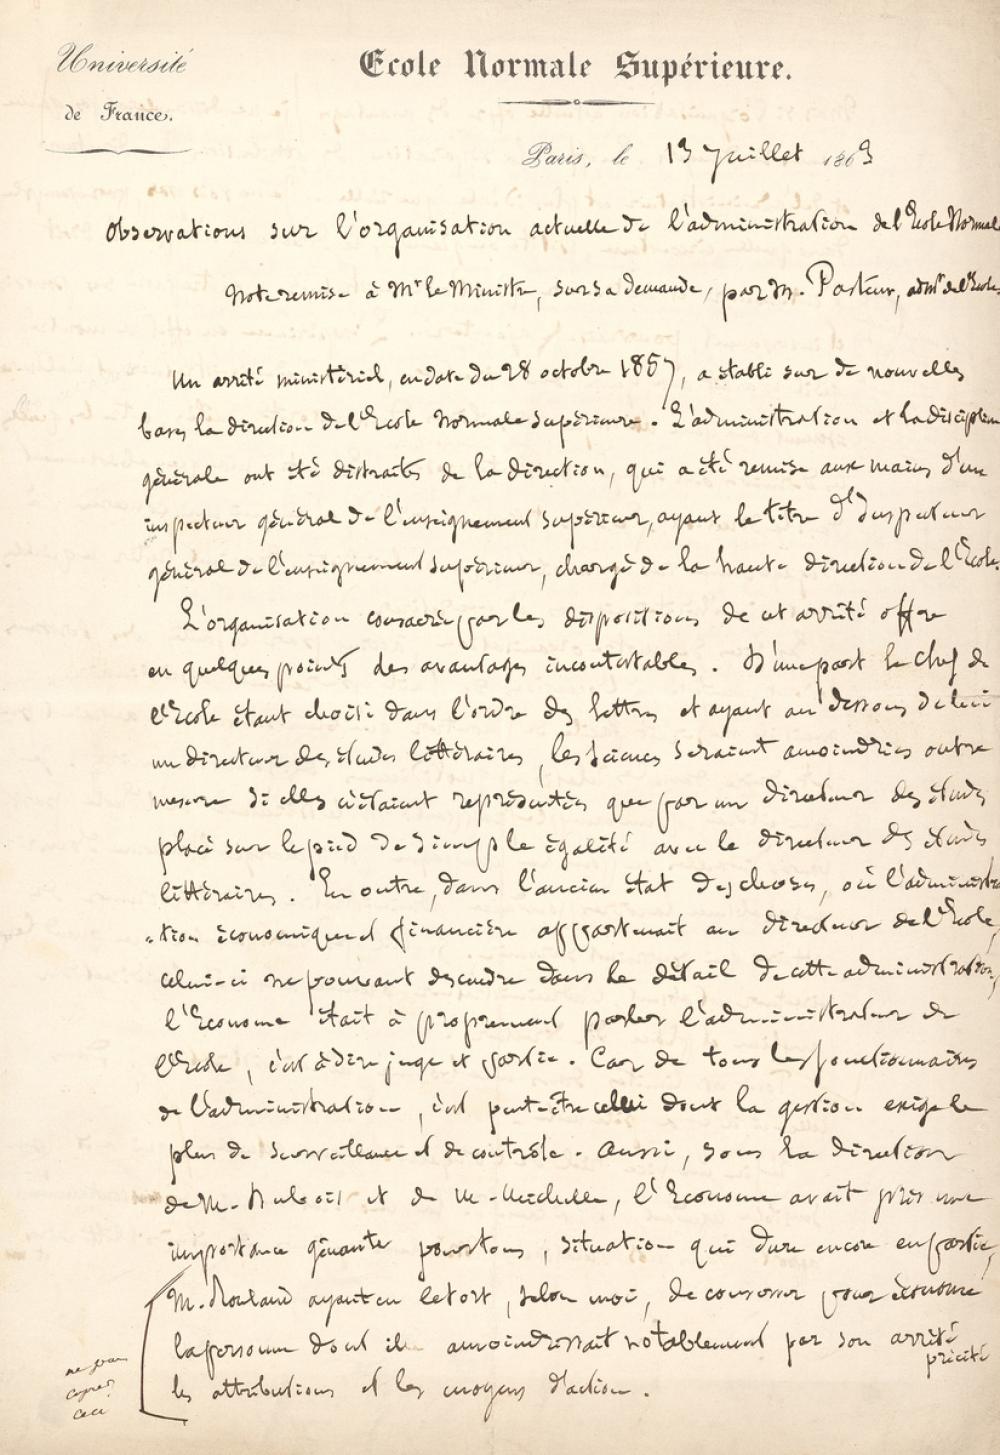 Université
de France.
Ecole Normale Supérieure.
Paris, le 13 Juillet 1863
Observations sur l'organisation actuelle de l'administration de l'Ecole Normale
Note remise à Mr le Ministre, sur sa demande, par M. Pasteur, admr de l'Ecole
Un arrêté ministériel, en date du 28 octobre 1857, a établi sur de nouvelles
bases la direction de l'Ecole Normale Supérieure. L'administration et la discipline
générale ont été distraites de la direction, qui a été remise aux mains d'un
inspecteur général de l'enseignement supérieur, ayant le titre d'Inspecteur
général de l'enseignement supérieur, chargé de la haute direction de l'Ecole.
L'organisation consacrée par les dispositions de cet arrêté offre
en quelques points des avantages incontestables. D'une part le chef de
l'Ecole étant choisi dans l'ordre des lettres et ayant au dessous de lui
un directeur des études littéraires, les sciences seraient amoindries outre
mesure si elles n'étaient représentées que par un directeur des études
placé sur le pied de simple égalité avec le directeur des études
littéraires. En outre, dans l'ancien état des choses, où l'administra
-tion économique et financière appartenait au directeur de l'Ecole,
celui-ci ne pouvant descendre dans le détail de cette administration,
l'Econome était à proprement parler l'administrateur de
l'Ecole, c'est à dire juge et partie. Car de tous les fonctionnaires
de l'administration, c'est peut-être celui dont la gestion exige le
plus de surveillance et de contrôle. Aussi, sous la direction
de M. Dubois et de M. Michelle, l'Econome avait pris une
importance gênante pour tous, situation qui dure encore en partie,
M. Rouland ayant eu le tort, selon moi, de conserver pour économe
la personne dont il amoindrissait notablement par son arrêté
précité
les attributions et les moyens d'action.
ne pas
copier
ceci